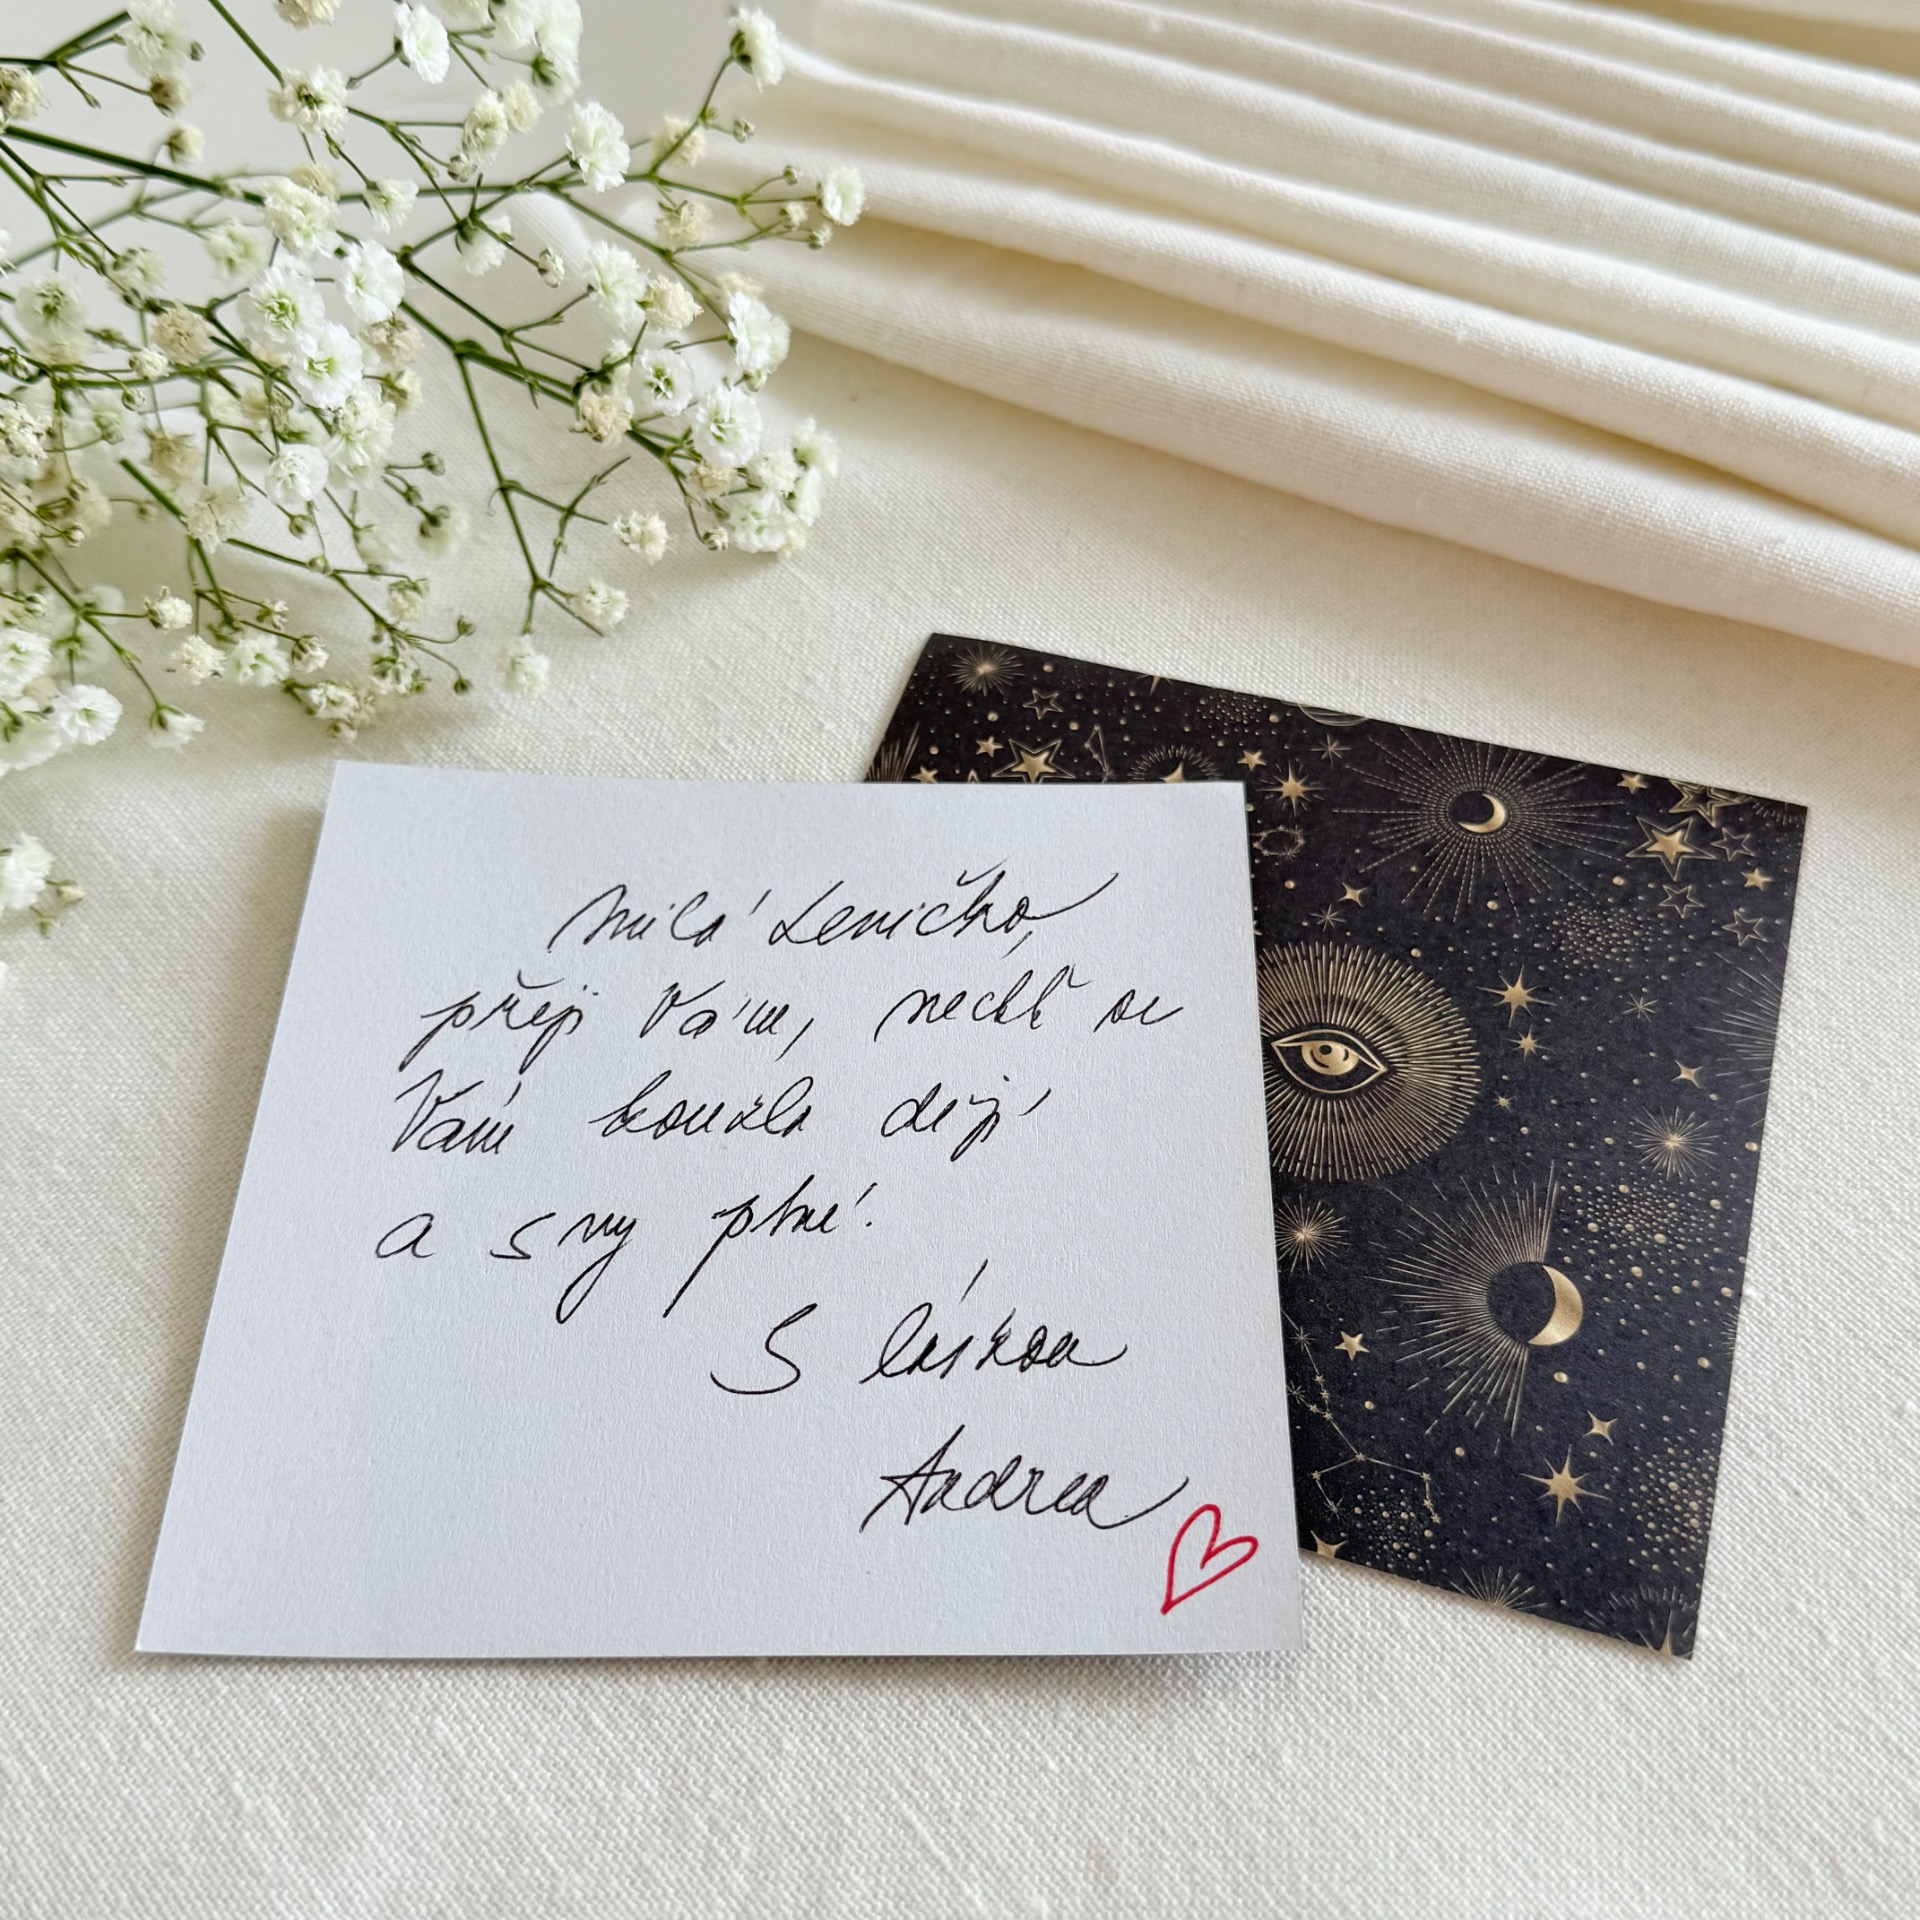 Milá Leničko,
přeji Vám, nechť se
Vám kouzla dějí
a sny plní.
S láskou
Andrea